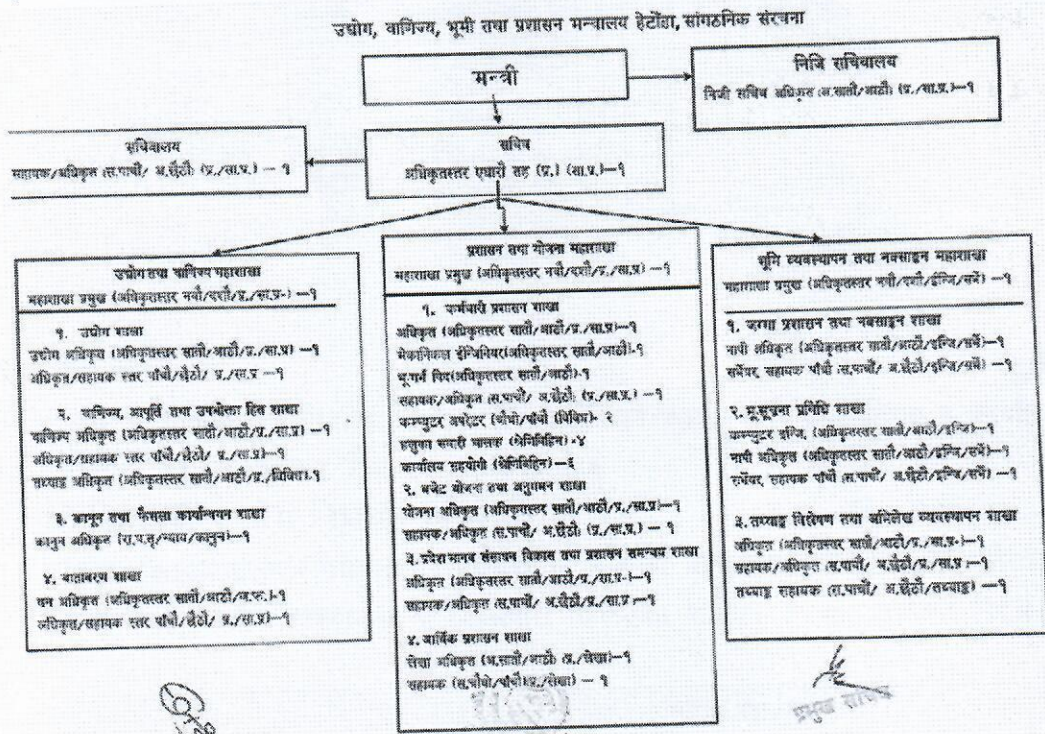 उद्योग, वाणिज्य, भूमी तथा प्रशासन मन्त्रालय हेटौंडा, सांगठनिक संरचना
मन्त्री
निजि सचिवालय
निजी सचिव अधिकृत (अ.सातौ/आठौ) (प्र./सा.प्र.)–१
सचिवालय
सहायक/अधिकृत (स.पाचौ/ अ.छैठौ) (प्र./सा.प्र.) – १
सचिव
अधिकृतस्तर एघारौ तह (प्र.) (सा.प्र.)–१
उद्योग तथा वाणिज्य महाशाखा
महाशाखा प्रमुख (अधिकृतस्तर नवौ/दशौ/प्र./सा.प्र.) –१
१. उद्योग शाखा
उद्योग अधिकृत (अधिकृतस्तर सातौ/आठौ/प्र./सा.प्र) –१
अधिकृत/सहायक स्तर पाँचौ/छैठौ/ प्र./सा.प्र –१
२. वाणिज्य, आपूर्ति तथा उपभोक्ता हित शाखा
वाणिज्य अधिकृत (अधिकृतस्तर सातौ/आठौ/प्र./सा.प्र) –१
अधिकृत/सहायक स्तर पाँचौ/छैठौ/ प्र./सा.प्र)–१
तथ्याङ्क अधिकृत (अधिकृतस्तर सातौ/आठौ/प्र./विविध).१
३. कानून तथा फैसला कार्यान्वयन शाखा
कानुन अधिकृत (रा.प.तृ/न्याय/कानुन)–१
४. वातावरण शाखा
वन अधिकृत (अधिकृतस्तर सातौ/आठौ/ज.फ.)-१
अधिकृत/सहायक स्तर पाँचौ/छैठौ/ प्र./सा.प्र)–१
प्रशासन तथा योजना महाशाखा
महाशाखा प्रमुख (अधिकृतस्तर नवौ/दशौ/प्र./सा.प्र) –१
१. कर्मचारी प्रशासन शाखा
अधिकृत (अधिकृतस्तर सातौ/आठौ/प्र./सा.प्र)–१
मेकानिकल ईन्जिनियर(अधिकृतस्तर सातौ/आठौ)-१
भू.गर्भ विद(अधिकृतस्तर सातौ/आठौ)-१
सहायक/अधिकृत (स.पाचौ/ अ.छैठौ) (प्र./सा.प्र.)–१
कम्प्युटर अपरेटर (चौथो/पाँचौ (विविध)- २
हलुका सवारी चालक (श्रेनिविहिन)-४
कार्यालय सहयोगी (श्रेनिविहिन) –६
२. बजेट योजना तथा अनुगमन शाखा
योजना अधिकृत (अधिकृतस्तर सातौ/आठौ/प्र./सा.प्र)–१
सहायक/अधिकृत (स.पाचौ/ अ.छैठौ) (प्र./सा.प्र.) – १
३. प्रदेश मानव संसाधन विकास तथा प्रशासन समन्वय शाखा
अधिकृत (अधिकृतस्तर सातौ/आठौ/प्र./सा.प्र.)–१
सहायक/अधिकृत (स.पाचौ/ अ.छैठौ/प्र./सा.प्र)–१
४. आर्थिक प्रशासन शाखा
लेखा अधिकृत (अ.सातौ/आठौ) (प्र./लेखा)–१
सहायक (स.चौथो/पाँचौ)(प्र./लेखा) – १
भूमि व्यवस्थापन तथा नक्साङ्कन महाशाखा
महाशाखा प्रमुख (अधिकृतस्तर नवौ/दशौ/ईन्जि/सर्भे) –१
१. जग्गा प्रशासन तथा नक्साङ्कन शाखा
नापी अधिकृत (अधिकृतस्तर सातौ/आठौ/इन्जि/सर्भे)–१
सर्भेयर, सहायक पाँचौ (स.पाचौ/ अ.छैठौ/इन्जि/सर्भे)–१
२. भू.सूचना प्रविधि शाखा
कम्प्युटर इन्जि. (अधिकृतस्तर सातौ/आठौ/इन्जि)–१
नापी अधिकृत (अधिकृतस्तर सातौ/आठौ/इन्जि/सर्भे)–१
सर्भेयर, सहायक पाँचौ (स.पाचौ/ अ.छैठौ/इन्जि/सर्भे)–१
३. तथ्याङ्क विश्लेषण तथा अभिलेख व्यवस्थापन शाखा
अधिकृत (अधिकृतस्तर सातौ/आठौ/प्र./सा.प्र.)–१
सहायक/अधिकृत (स.पाचौ/ अ.छैठौ/प्र./सा.प्र)–१
तथ्याङ्क सहायक (स.पाचौ/ अ.छैठौ/तथ्याङ्क) –१
प्रमुख सचिव